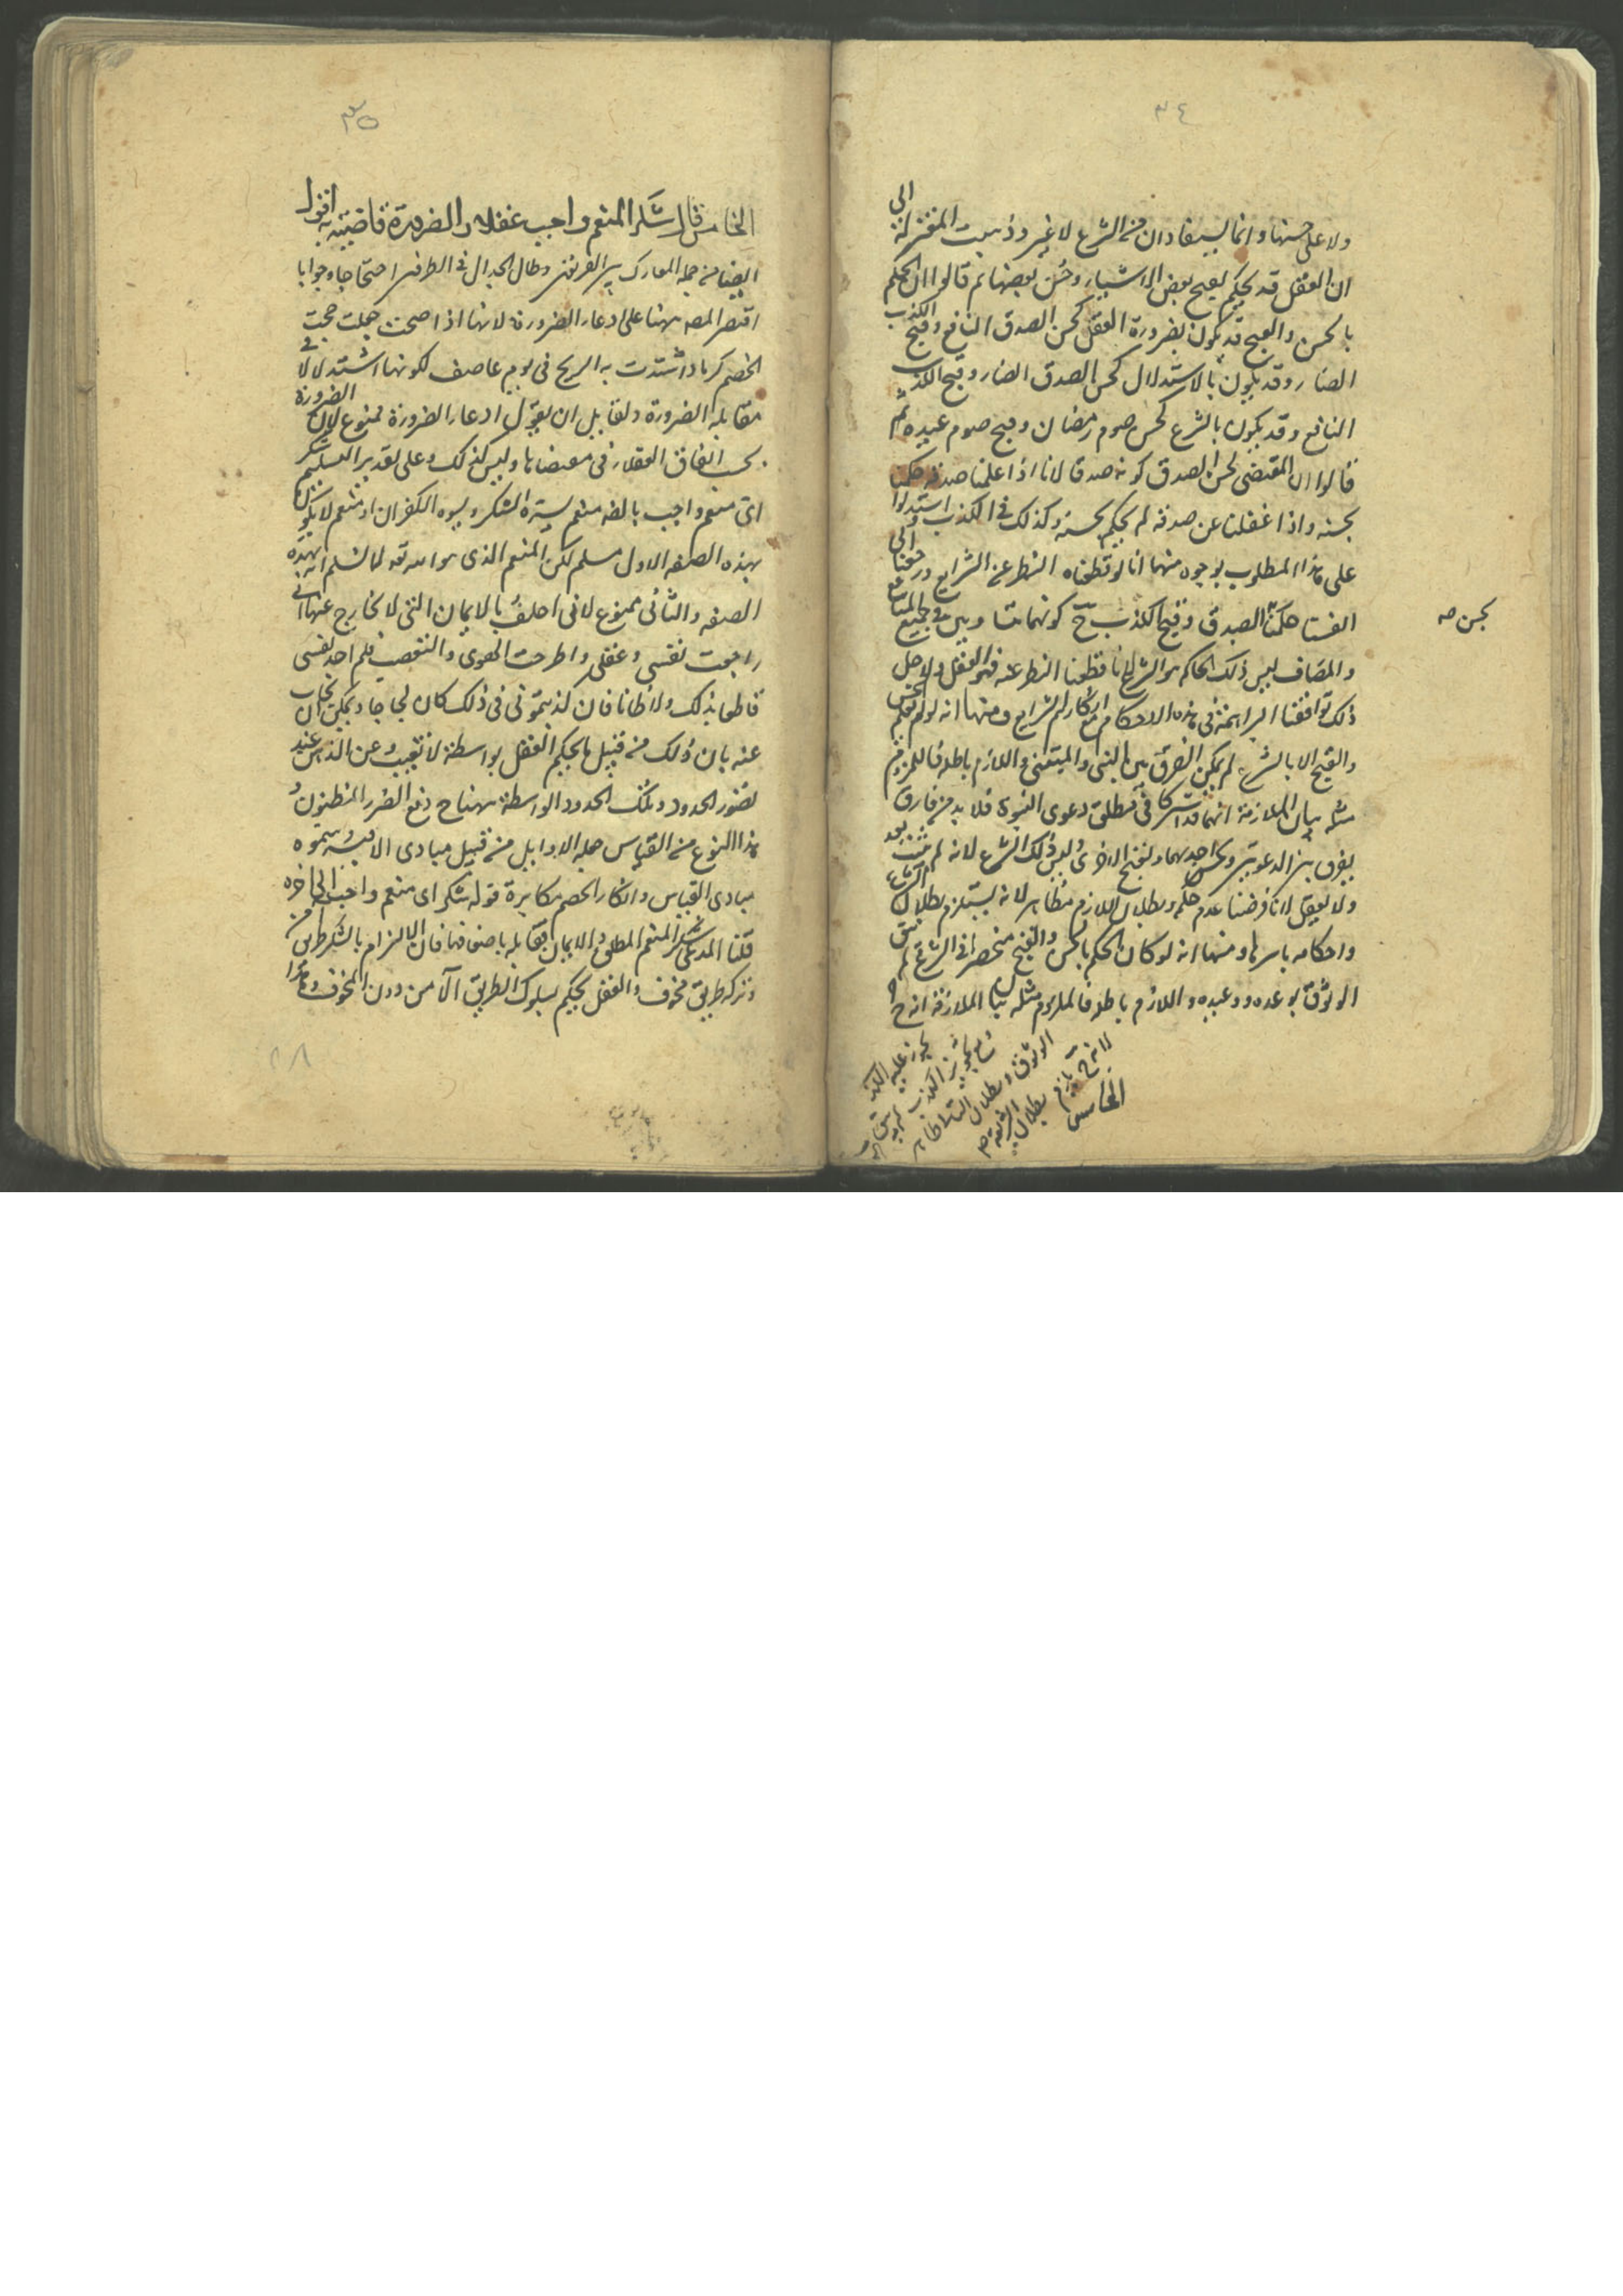 ٣٤
ولا على حسنها وانما يستفادان من الشرع لا غير وذهبت المعتزلة الى
ان العقل قد يحكم بقبح بعض الاشياء وحسن بعضها ثم قالوا ان الحكم
بالحسن والقبح قد يكون بضرورة العقل كحسن الصدق النافع وقبح الكذب
الضار وقد يكون بالاستدلال كحسن الصدق الضار وقبح الكذب
النافع وقد يكون بالشرع كحسن صوم رمضان وقبح صوم عيده ثم
قالوا ان المقتضى لحسن الصدق كونه صدقا لانا اذا علمنا صدقه حكمنا
بحسنه واذا غفلنا عن صدقه لم نحكم بحسنه وكذلك في الكذب استدلوا
على هذا المطلوب بوجوه منها انا لو قطعنا النظر عن الشرايع ورجعنا الى
انفسنا حكمنا الصدق وقبح الكذب ح كونهما
بحسن صه
والمضاف ليس ذلك الحاكم هو الشرع لانا قطعنا النظر عنه فهو العقل ولاجل
ذلك توافقنا البراهمة في هذه الاحكام مع انكارهم الشرايع ومنها انه لو لم نعلم الحسن
والقبح الا بالشرع لم يمكن الفرق بين النبي والمتنبي واللازم باطل فالملزوم
مثله بيان الملازمة انهما قد اشتركا في مطلق دعوى النبوة فلا بد من فارق
يفرق بين الدعوتين ويحسن احديهما ويقبح الاخرى وليس ذلك الشرع لانه لم يثبت بعد
ولا العقل لانا فرضنا عدم حكمه وبطلان اللازم فظاهر لانه يستلزم بطلان الشرع
واحكامه باسرها ومنها انه لو كان الحكم بالحسن والقبح منحصرا في الشرع لم يبق
الوثوق بوعده ووعيده واللازم باطل فالملزوم مثله بيان الملازمة انه ح
يجوز عليه الكذب
ومع تجويز الكذب لا يبقى
الوثوق وبطلان التالي ظاهر
لانه ح يلزم بطلان الشريعة
الخامس
٣٥
الخامس قال شكر المنعم واجب عقلا والضرورة قاضية به اقول
ايضا من جملة المعارك بين الفريقين وطال الجدال في الطرفين احتجاجا وجوابا
اقتصر المصه ههنا على ادعاء الضرورة لانها اذا صحت جعلت حجت
الخصم كرماد اشتدت به الريح في يوم عاصف لكونها استدلالا في
مقابلة الضرورة ولقايل ان يقول ادعاء الضرورة ممنوع لان الضرورة
يجب اتفاق العقلاء في مقتضاها وليس كذلك وعلى تقدير التسليم شكر
اي منعم واجب بالضه منعم يسره الشكر ويسوءه الكفران او منعم لا يكون
بهذه الصفه الاول مسلم لكن المنعم الذى هو الله تعه لا نسلم انه بهذه
الصفه والثانى ممنوع لانى احلف بالايمان التى لا مخارج عنها انى
راجعت نفسى وعقلى واطرحت الهوى والتعصب فلم اجد نفسى
قاطعا بذلك ولا ظانا فان كذبتمونى في ذلك كان لجاجا ويمكن ان يجاب
عنه بان ذلك من قبيل ما يحكم العقل بواسطة لا تغيب عن الذهن عند
تصور الحدود وتلك الحدود الواسطة ههنا ح دفع الضرر المظنون و
هذا النوع من القياس جعله الاوايل من قبيل مبادى الاقيسه وسموه
مبادى القياس وانكار الخصم مكابرة قوله شكر اى منعم واجب الى اخره
قلنا المدعى شكر المنعم المطلق الايمان فان الالتزام بالشكر طريق امن
وتركه طريق مخوف والعقل يحكم بسلوك الطريق الآمن دون المخوف وهذا